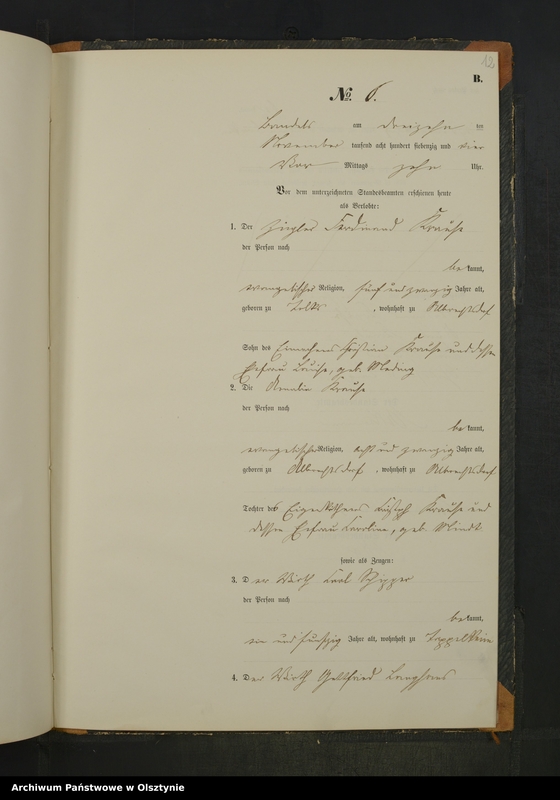 12
B.
No. 6.
Bandels am dreizehn ten
November tausend acht hundert siebenzig und vier
Vor Mittags zehn Uhr.
Vor dem unterzeichneten Standesbeamten erschienen heute
als Verlobte:
1. Der Ziegler Ferdinand Krause
der Person nach
bekannt,
evangelischer Religion, fünf und zwanzig Jahre alt,
geboren zu Tolks, wohnhaft zu Albrechtsdorf
Sohn des Krause und dessen
Ehefrau Louise, geb.
2. Die Amalie Krause
der Person nach
bekannt,
evangelische Religion, acht und zwanzig Jahre alt,
geboren zu Albrechtsdorf, wohnhaft zu Albrechtsdorf
Tochter des Eigenkäthners Krause und
dessen Ehefrau Caroline, geb.
sowie als Zeugen:
3. Der Wirth Carl
der Person nach
bekannt,
ein und fünfzig Jahre alt, wohnhaft zu
4. Der Wirth Gottfried Langhans
Archiwum Państwowe w Olsztynie